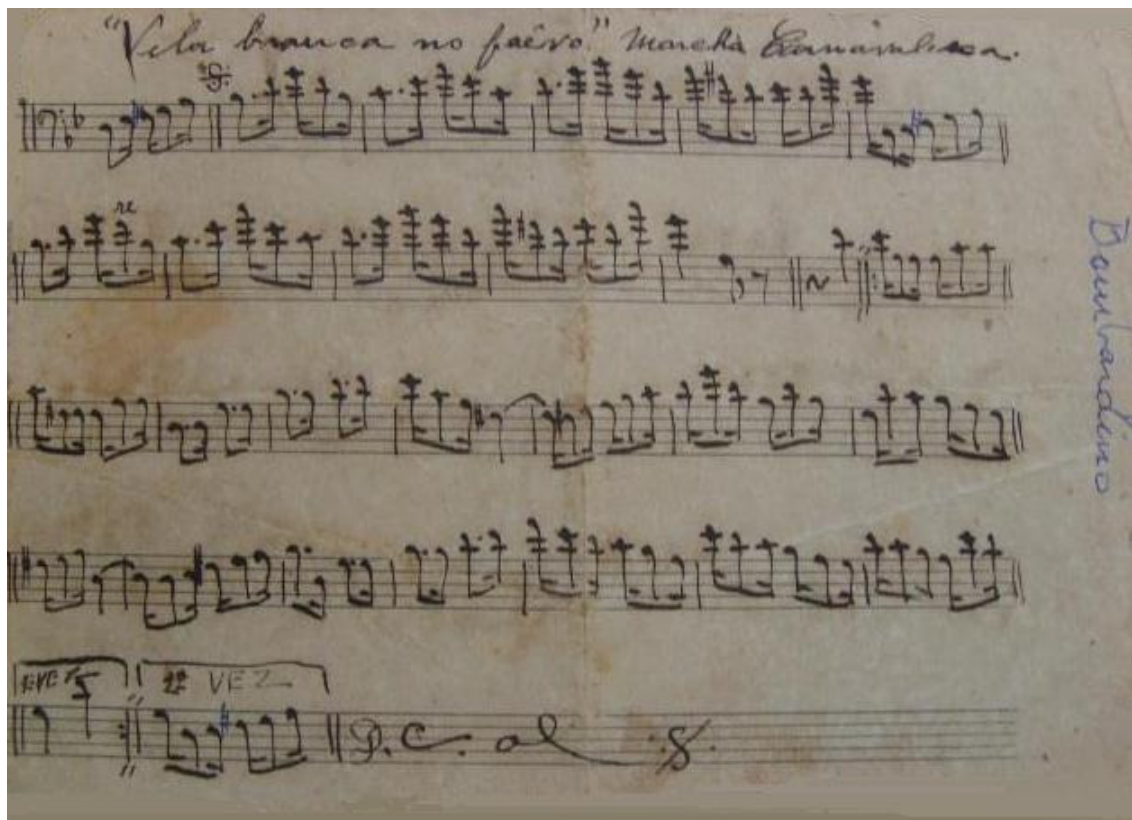 "Vela branca no frêvo." Marcha Carnavalesca.
re
Bombardino
2ª VEZ
D.C. al 𝄋